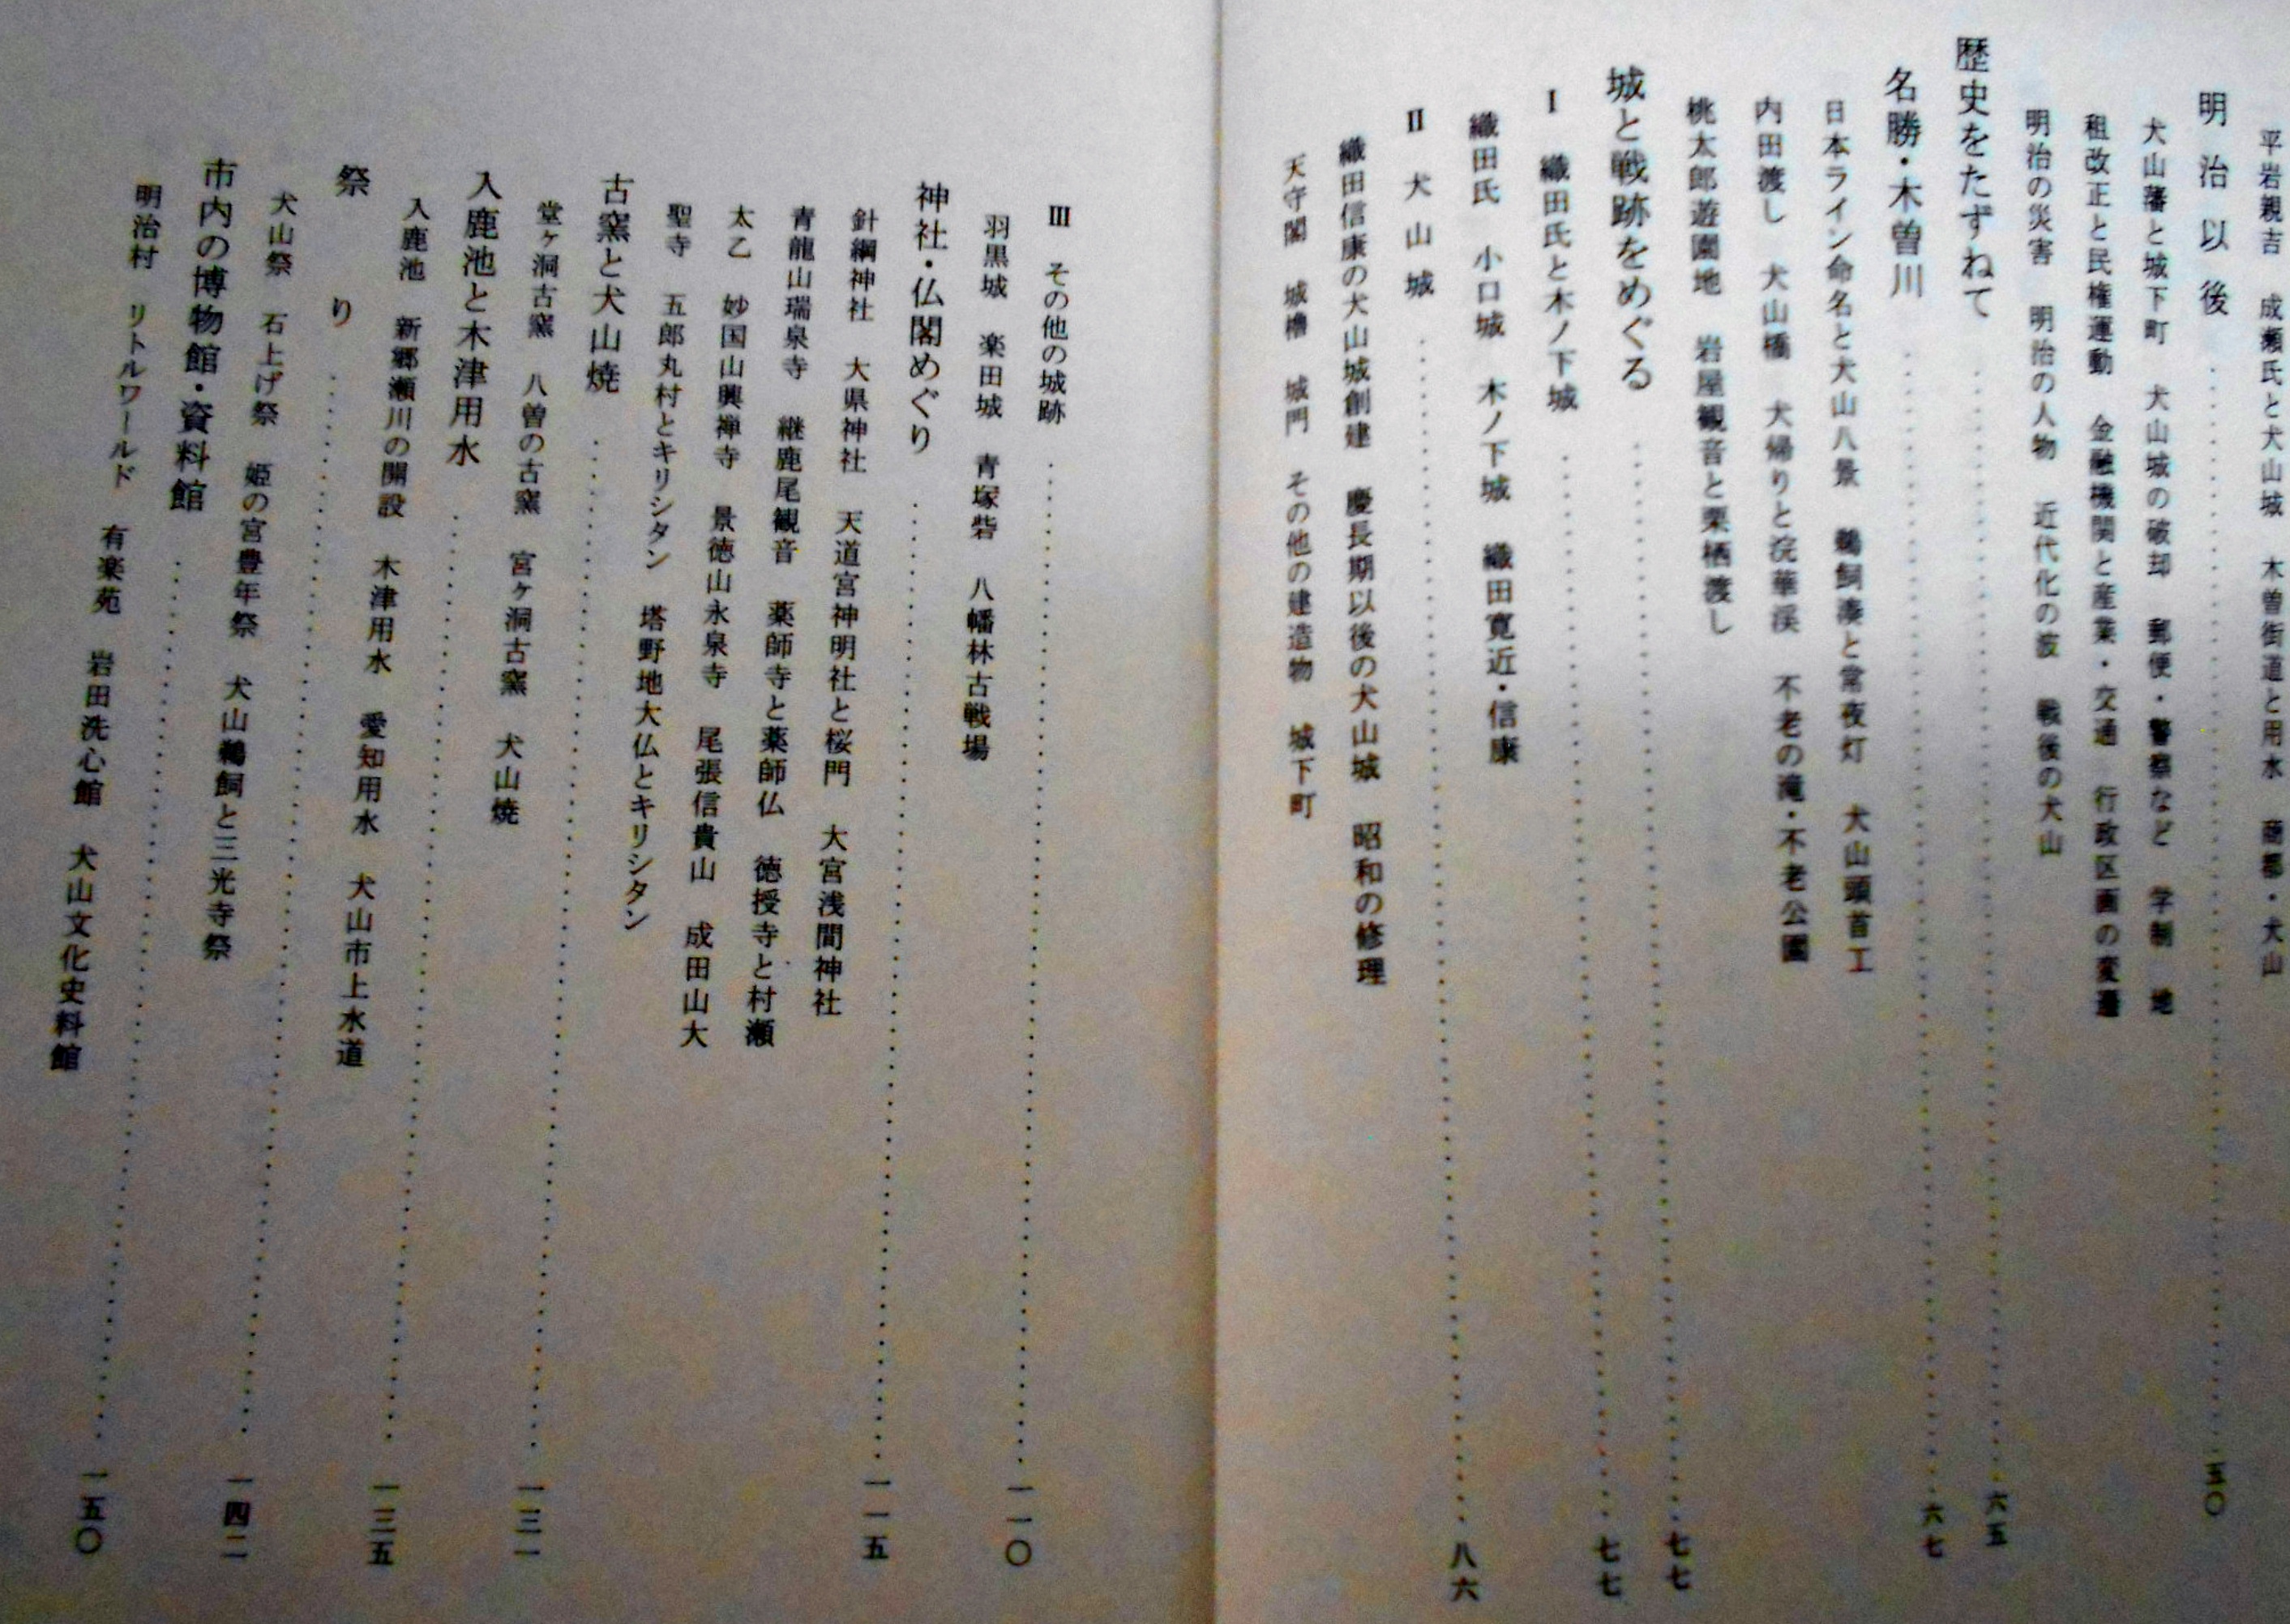 平岩親吉　成瀬氏と犬山城　木曽街道と用水　商都・犬山
明治以後……五〇
犬山藩と城下町　犬山城の破却　郵便・警察など　学制　地
租改正と民権運動　金融機関と産業・交通　行政区画の変遷
明治の災害　明治の人物　近代化の波　戦後の犬山
歴史をたずねて……六五
名勝・木曽川……六七
日本ライン命名と犬山八景　鵜飼湊と常夜灯　犬山頭首工
内田渡し　犬山橋　犬帰りと浣華渓　不老の滝・不老公園
桃太郎遊園地　岩屋観音と栗栖渡し
城と戦跡をめぐる……七七
Ⅰ　織田氏と木ノ下城……七七
織田氏　小口城　木ノ下城　織田寛近・信康
Ⅱ　犬山城……八六
織田信康の犬山城創建　慶長期以後の犬山城　昭和の修理
天守閣　城櫓　城門　その他の建造物　城下町
Ⅲ　その他の城跡……一一〇
羽黒城　楽田城　青塚砦　八幡林古戦場
神社・仏閣めぐり……一一五
針綱神社　大県神社　天道宮神明社と桜門　大宮浅間神社
青龍山瑞泉寺　継鹿尾観音　薬師寺と薬師仏　徳授寺と村瀬
太乙　妙国山興禅寺　景徳山永泉寺　尾張信貴山　成田山大
聖寺　五郎丸村とキリシタン　塔野地大仏とキリシタン
古窯と犬山焼……一三一
堂ヶ洞古窯　八曽の古窯　宮ヶ洞古窯　犬山焼
入鹿池と木津用水……一三五
入鹿池　新郷瀬川の開設　木津用水　愛知用水　犬山市上水道
祭り……一四二
犬山祭　石上げ祭　姫の宮豊年祭　犬山鵜飼と三光寺祭
市内の博物館・資料館……一五〇
明治村　リトルワールド　有楽苑　岩田洗心館　犬山文化史料館